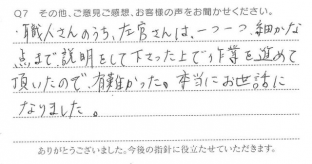 Q7 その他、ご意見ご感想、お客様の声をお聞かせください。
・職人さんのうち、左官さんは、一つ一つ、細かな
点まで説明をして下さった上で、作業を進めて
頂いたので、有難かった。本当にお世話に
なりました。
ありがとうございました。今後の指針に役立たせていただきます。